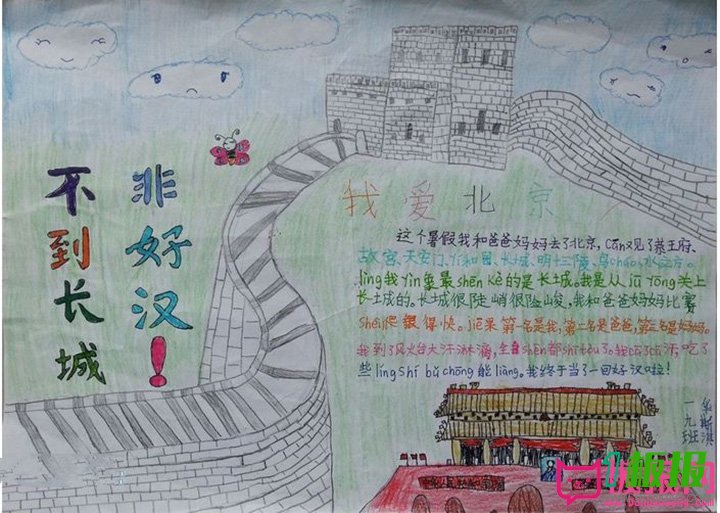 不到长城
非好汉！
我爱北京
这个暑假我和爸爸妈妈去了北京，cān观了恭王府、
故宫、天安门、yí和园、长城、明十三陵、鸟cháo、水立方。
ling我yìn象最shēn kè的是长城。我是从jū yōng关上
长城的。长城很陡峭很险峻，我和爸爸妈妈比赛
shéi爬得快。jié果第一名是我，第二名是爸爸，第三名是妈妈。
我到了风火台大汗淋漓，全shēn都shī tòu了。我cā cā汗，吃了
些líng shí bǔ chōng能liàng。我终于当了一回好汉啦！
一九班